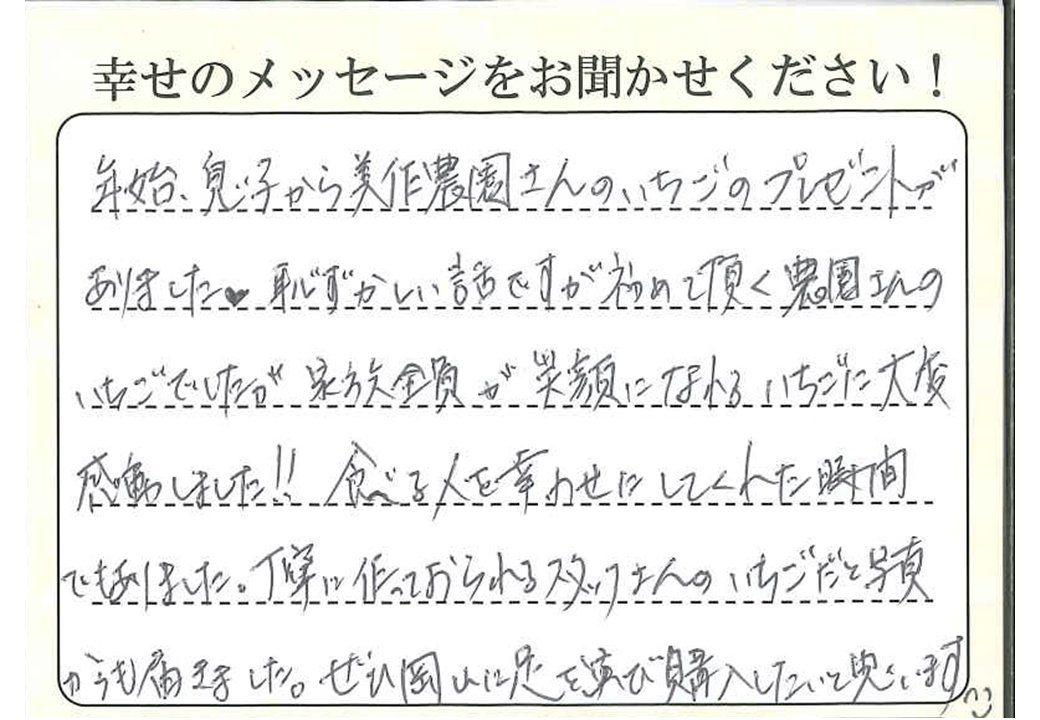 幸せのメッセージをお聞かせください！
年始、息子から美作農園さんのいちごのプレゼントが
ありました♥ 恥ずかしい話ですが初めて頂く農園さんの
いちごでしたが 家族全員が 笑顔になれる いちごに大変
感動しました!! 食べる人を幸わせにしてくれた瞬間
でもありました。丁寧に作っておられるスタッフさんの いちごだと写真
からも届きました。ぜひ岡山に足を運び購入したいと思います